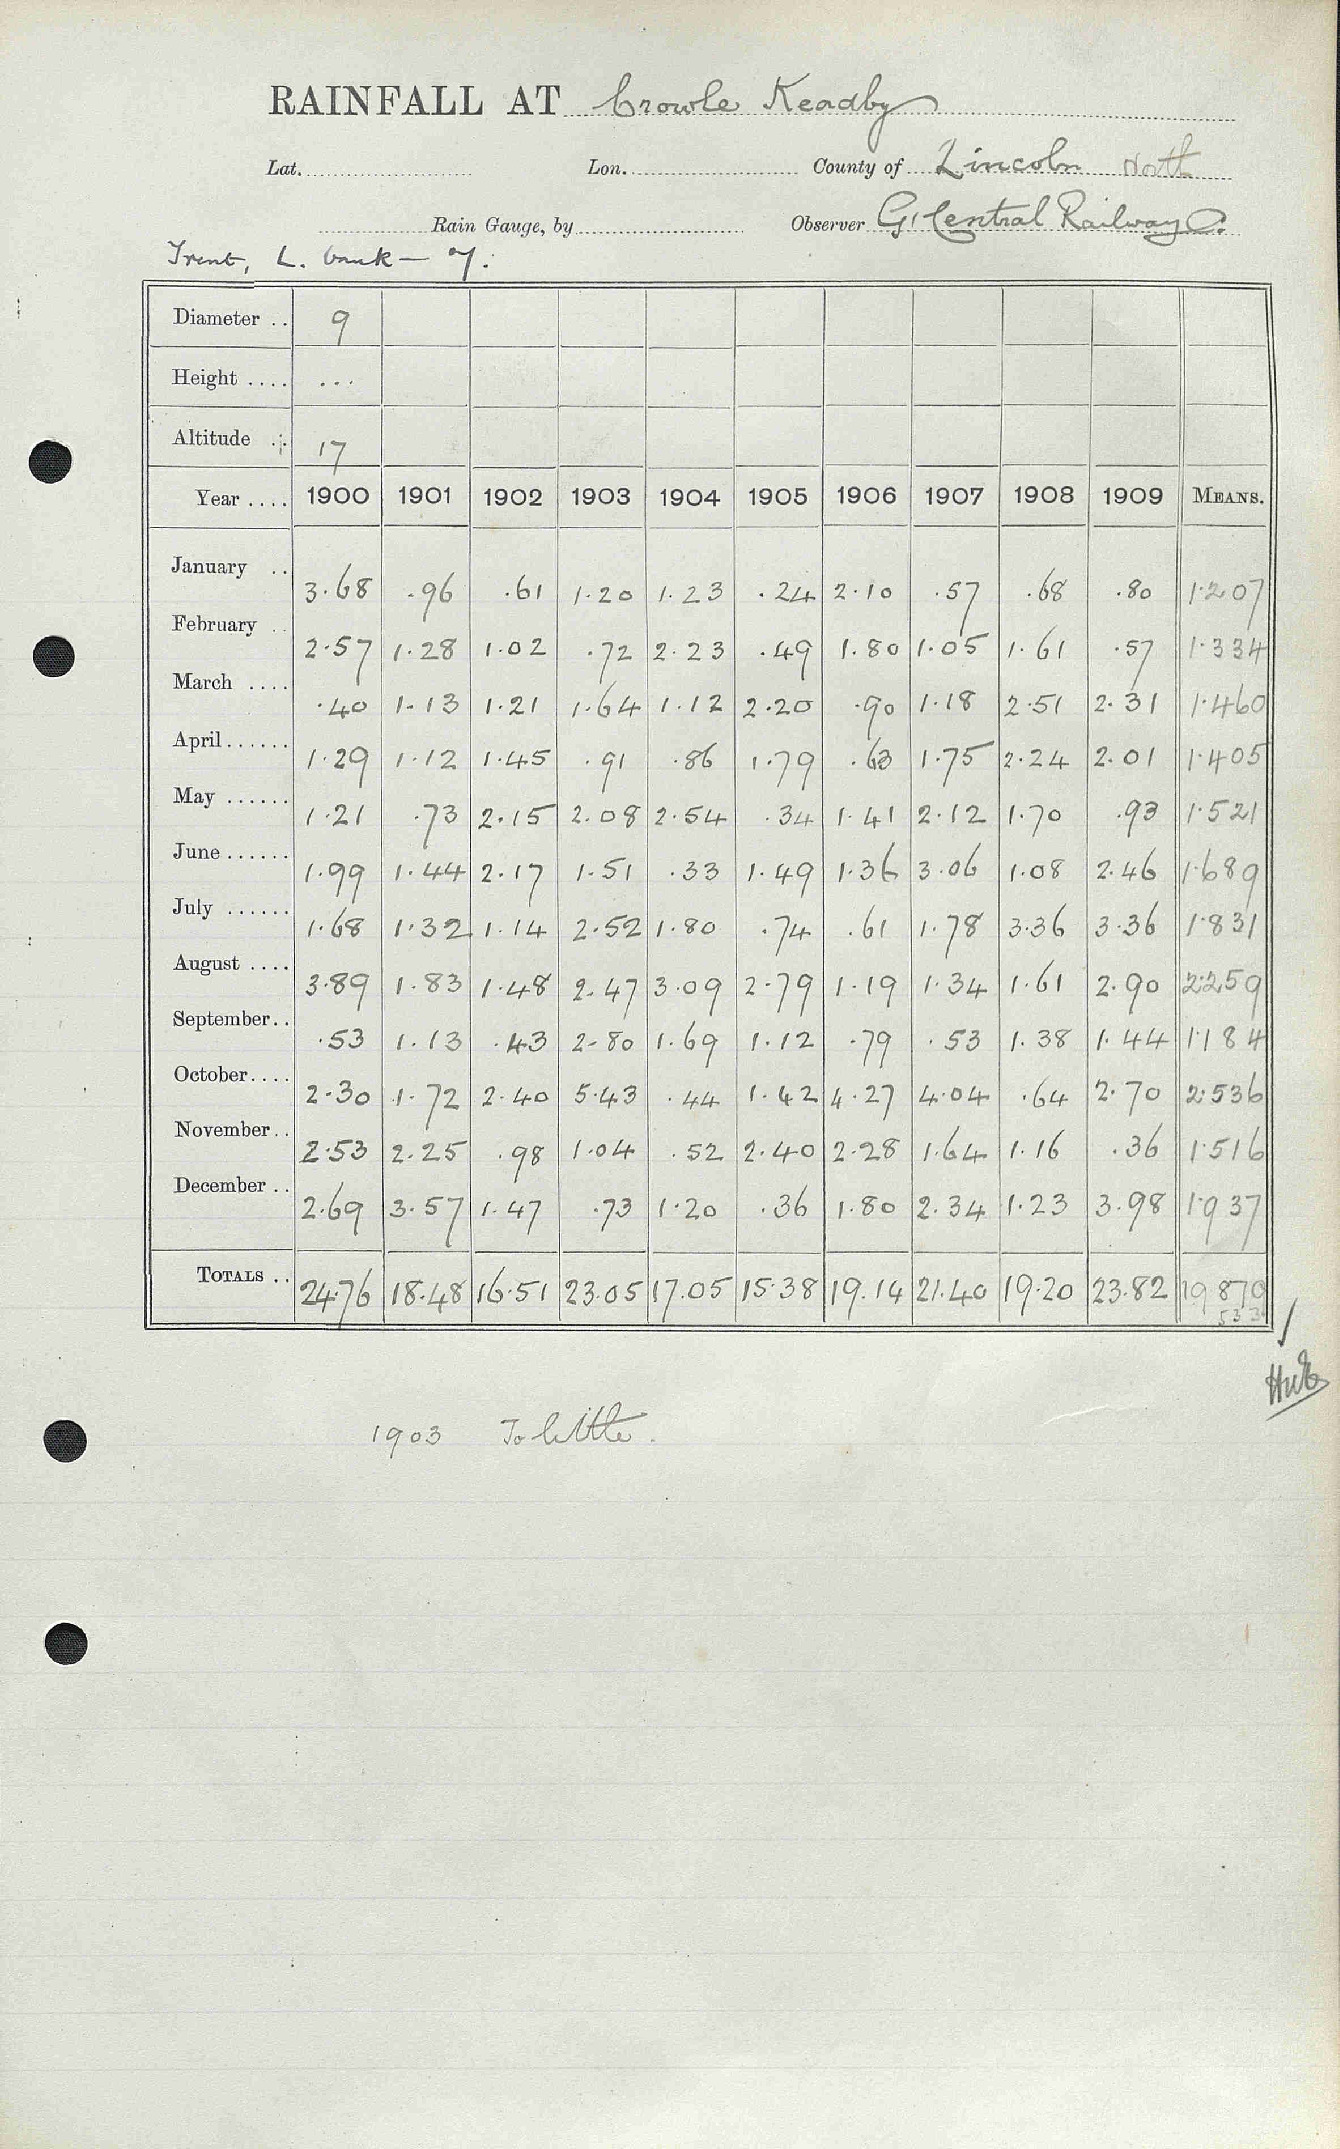 RAINFALL AT Crowle Keadby
Lat. Lon. County of Lincoln North
Rain Gauge, by Observer Gt Central Railway Co.
Trent, L. bank – of.
Diameter .. 9
Height .... ...
Altitude .. 17
Year .... 1900 1901 1902 1903 1904 1905 1906 1907 1908 1909 MEANS.
January .. 3.68 .96 .61 1.20 1.23 .24 2.10 .57 .68 .80 1.207
February .. 2.57 1.28 1.02 .72 2.23 .49 1.80 1.05 1.61 .57 1.334
March .... .40 1.13 1.21 1.64 1.12 2.20 .90 1.18 2.51 2.31 1.460
April...... 1.29 1.12 1.45 .91 .86 1.79 .63 1.75 2.24 2.01 1.405
May ...... 1.21 .73 2.15 2.08 2.54 .34 1.41 2.12 1.70 .93 1.521
June...... 1.99 1.44 2.17 1.51 .33 1.49 1.36 3.06 1.08 2.46 1.689
July ...... 1.68 1.32 1.14 2.52 1.80 .74 .61 1.78 3.36 3.36 1.831
August .... 3.89 1.83 1.48 2.47 3.09 2.79 1.19 1.34 1.61 2.90 2.259
September.. .53 1.13 .43 2.80 1.69 1.12 .79 .53 1.38 1.44 1.184
October.... 2.30 1.72 2.40 5.43 .44 1.42 4.27 4.04 .64 2.70 2.536
November.. 2.53 2.25 .98 1.04 .52 2.40 2.28 1.64 1.16 .36 1.516
December .. 2.69 3.57 1.47 .73 1.20 .36 1.80 2.34 1.23 3.98 1.937
TOTALS .. 24.76 18.48 16.51 23.05 17.05 15.38 19.14 21.40 19.20 23.82 19.879
533
1903 To little.